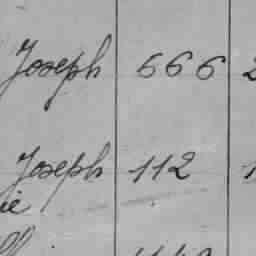 Joseph 666
Joseph 112
ie